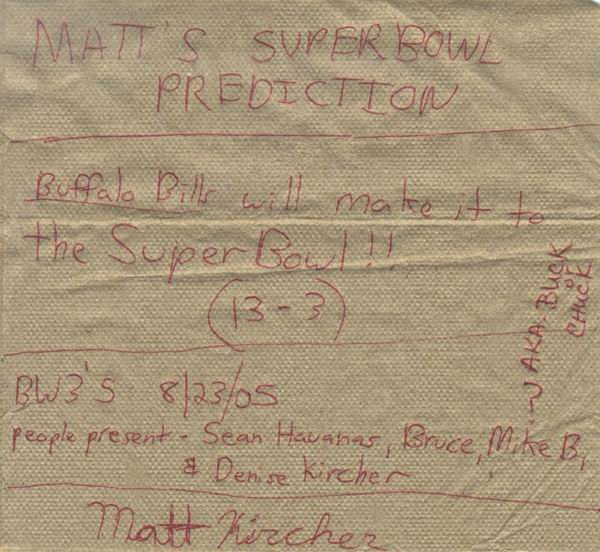 MATT'S SUPERBOWL
PREDICTION
Buffalo Bills will make it to
the SuperBowl!!
(13-3)
BW3'S 8/23/05
people present - Sean Havanas, Bruce, Mike B,
& Denise Kircher
Matt Kircher
AKA-BUCK
or
CHUCK